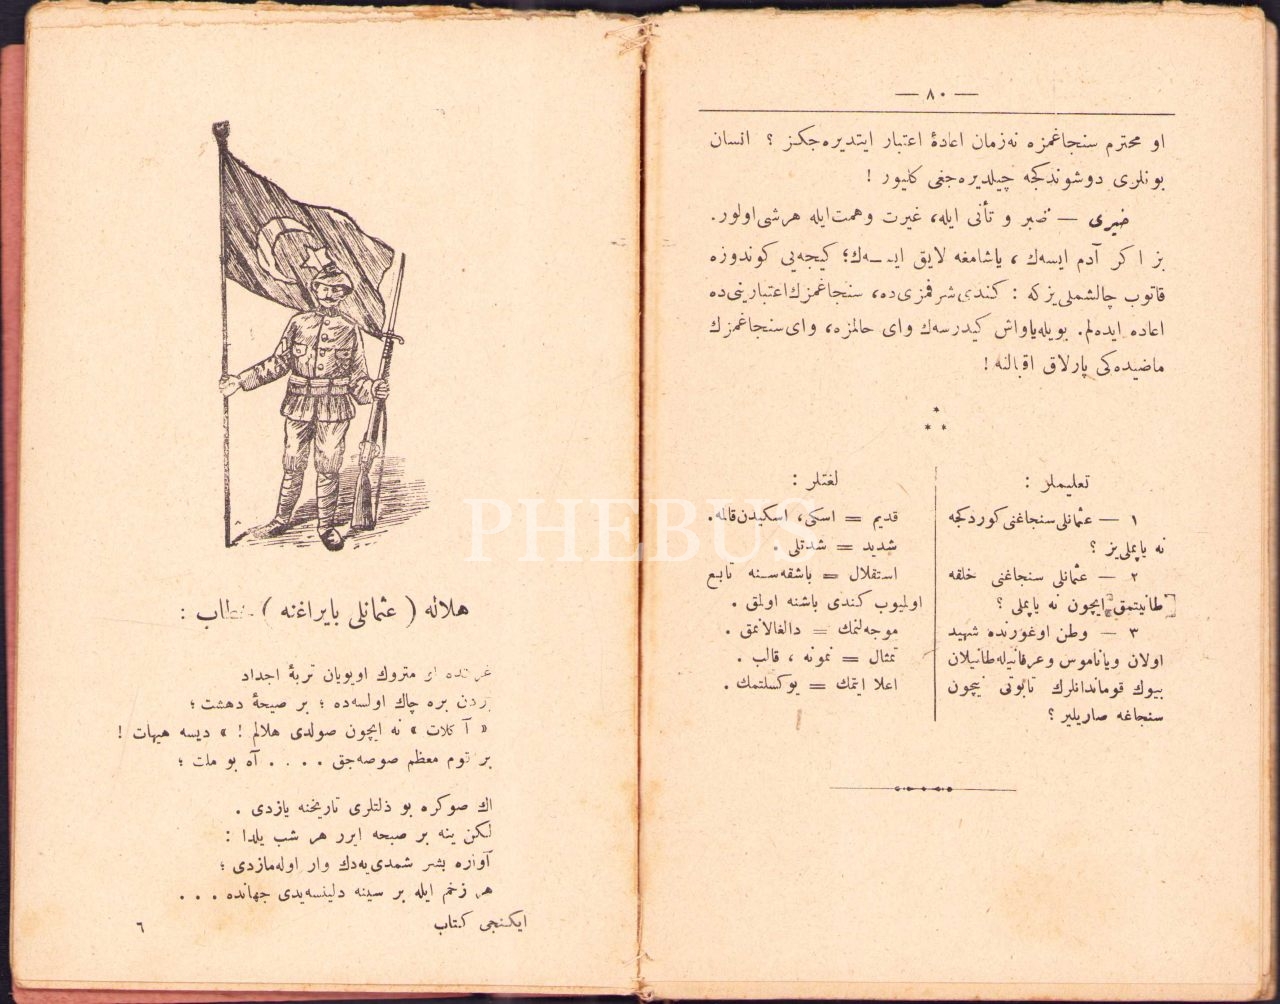 — ٨٠ —
او محترم سنجاغمزه نه‌زمان اعادهٔ اعتبار ایتدیره‌جکز ؟ انسان
بونلری دوشوندکجه چیلدیره‌جغی کلیور !
خیری — صبر و تأنی ایله، غیرت وهمت‌ایله هرشی‌اولور.
بز اکر آدم ایسه‌ك ، یاشامغه لایق ایسه‌ك؛ کیجه‌یی کوندوزه
قاتوب چالشملی‌یزکه : کندی شرفمزی‌ده، سنجاغمزك‌اعتبارینی‌ده
اعاده ایده‌لم. بویله‌یاواش کیدرسه‌ك وای حالمزه، وای‌سنجاغمزك
ماضیده‌کی پارلاق اقبالنه !
*
* *
تعلیملر :
١ — عثمانلی سنجاغنی‌کوردکجه
نه یاپملی‌یز ؟
٢ — عثمانلی سنجاغنی خلقه
طانیتمق ایچون نه یاپملی ؟
٣ — وطن اوغورنده شهید
اولان ویاناموس وعرفانیله‌طانیلان
بیوك قوماندانلرك تابوتی نیچون
سنجاغه صاریلیر ؟
لغتلر :
قدیم = اسکی، اسکیدن‌قالمه.
شدید = شدتلی .
استقلال = باشقه‌سنه تابع
اولمیوب کندی باشنه اولمق .
موجه‌لنمك = دالغالانمق .
تمثال = نمونه ، قالب .
اعلا ایتمك = یوکسلتمك .
هلاله ( عثمانلی بایراغنه ) خطاب :
ای متروك اویویان تربهٔ اجداد
بره چاك اولسه‌ده ؛ بر صیحهٔ دهشت ؛
« آکلات » نه ایچون صولدی هلالم ! » دیسه هیهات !
بر قوم معظم صوصه‌جق . . . . آه بو ملت ؛
اك صوکره بو ذلتلری تاریخنه یازدی .
لکن ینه بر صبحه ایرر هر شب یلدا :
آوازه بشر شمدی‌یه‌دك وار اوله‌مازدی ؛
هر زخم ایله بر سینه دلینسه‌یدی جهانده . . .
ایکنجی کتاب
٦
PHEBUS